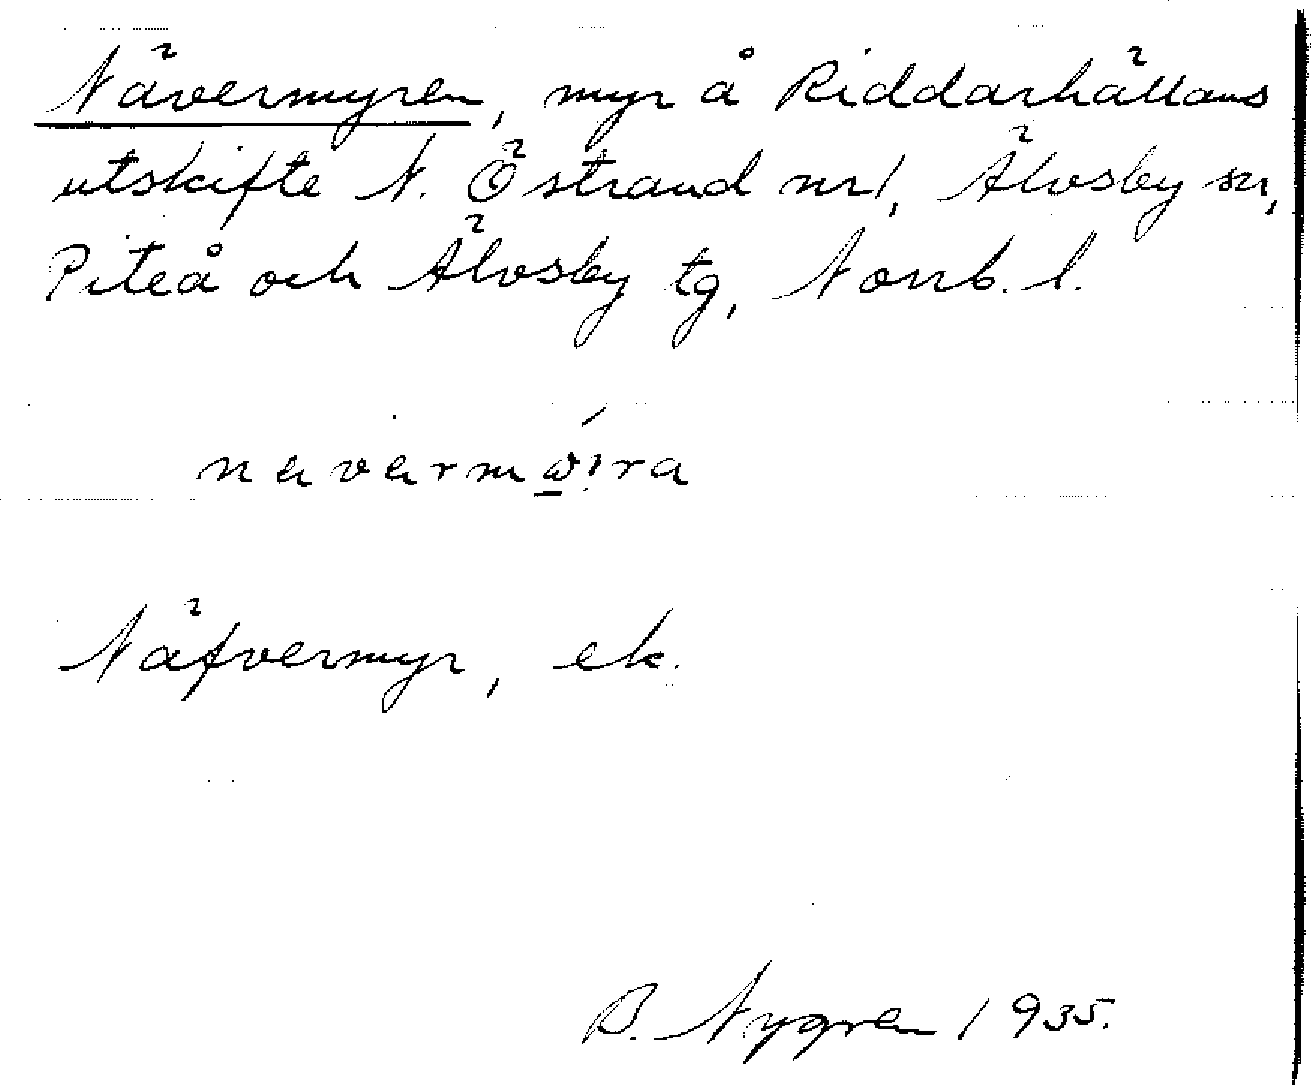 Nävermyren, myr å Riddarhällans
utskifte N. Östrand nr 1, Älvsby sn,
Piteå och Älvsby tg, Norrb. l.
Näfvermyr, ek.
B. Nygren 1935.